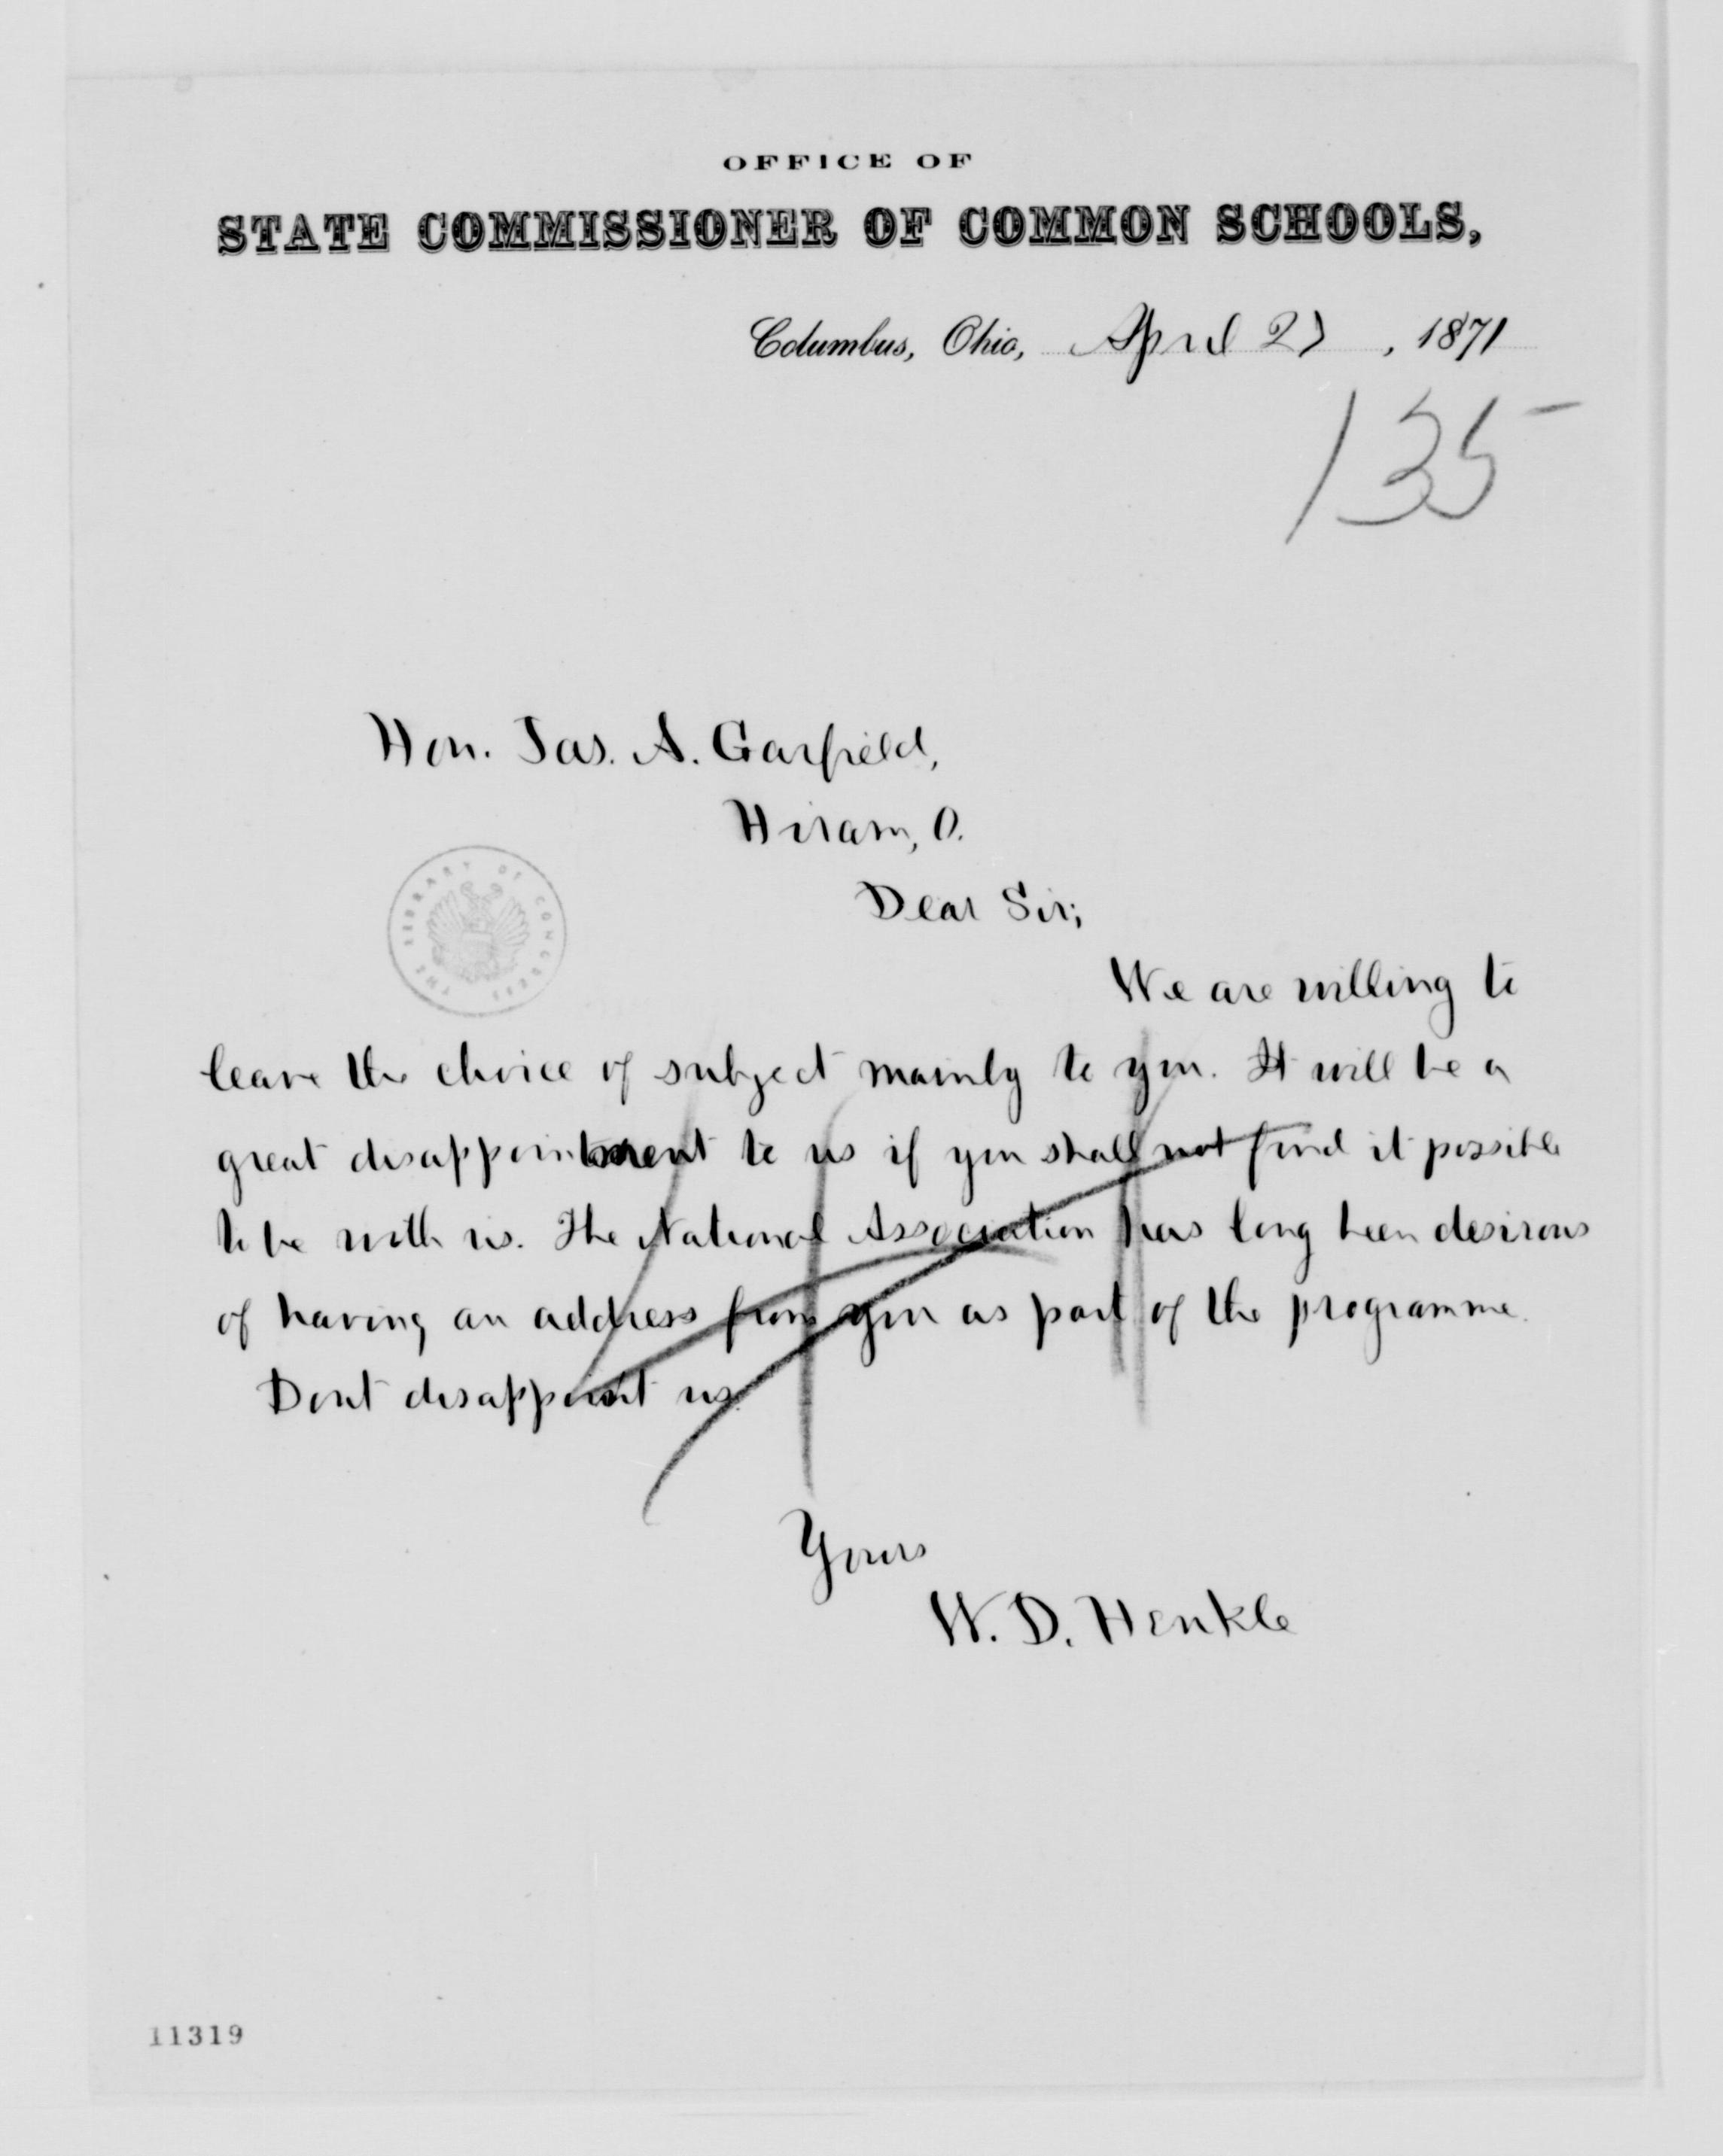 OFFICE OF
STATE COMMISSIONER OF COMMON SCHOOLS,
Columbus, Ohio, April 27, 1871
135
Hon. Jas. A. Garfield,
Hiram, O.
Dear Sir;
THE LIBRARY OF CONGRESS
We are willing to
leave the choice of subject mainly to you. It will be a
great disappointment to us if you shall not find it possible
to be with us. The National Association has long been desirous
of having an address from you as part of the programme.
Dont disappoint us.
Yours
W. D. Henkle
11319